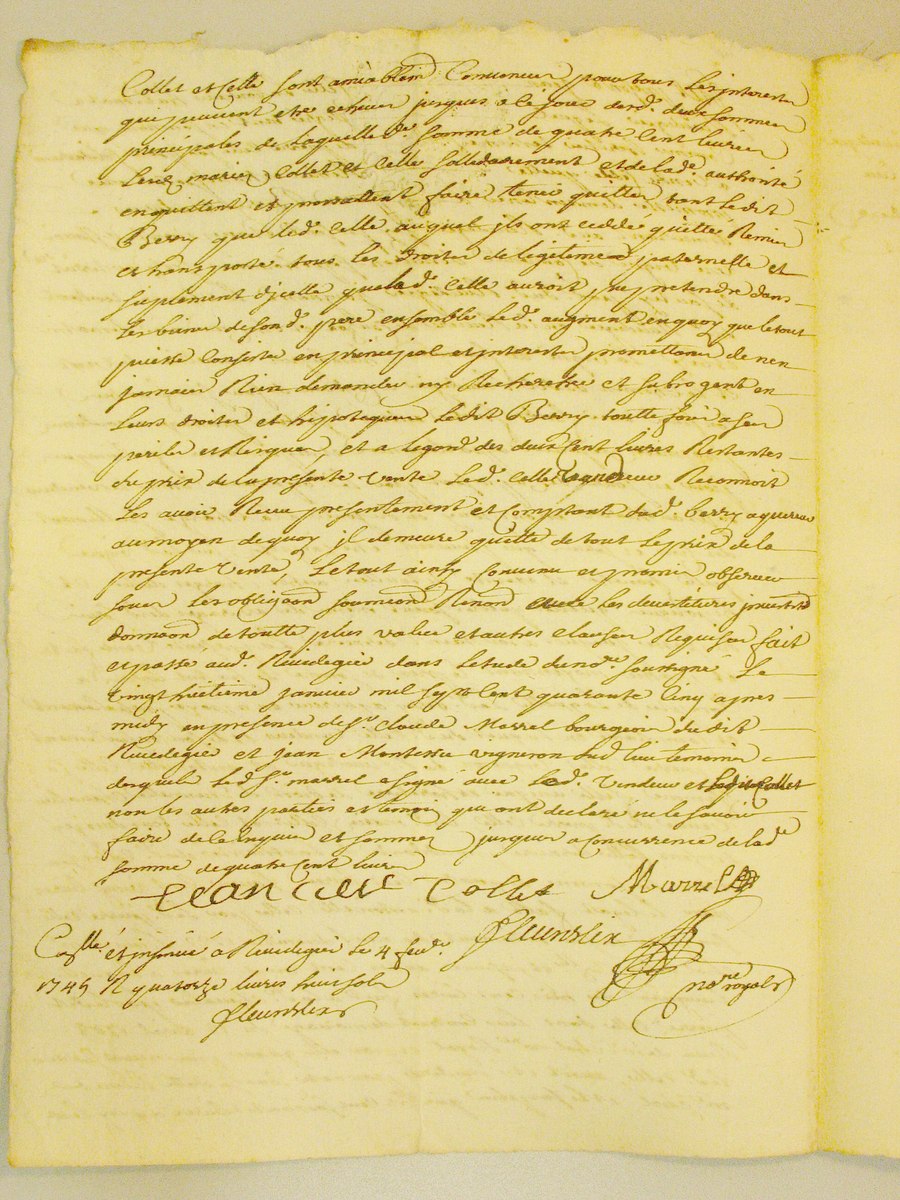 Collet et Celle sont amiablemd Convenues pour tous les interests
qui peuvent etre echeus jusques a ce jour desd. deux sommes
principales de laquelle de. somme de quatre Cent livres
Lesd. mariés Collet et Celle sollidairement et de lade. authorité
en quittent et promettent faire tenir quitter tant ledit
Berry que led. Celle auquel ils ont ceddé quitté Remis
et transporté tous les droits de légitime paternelle et
suplement d'jcelle que lade. Celle auroit pu pretendre dans
les biens de sond. pere ensemble led. augment en quoy que le tout
puisse Consister en principal et jnterests promettants de n'en
jamais Rien demander ny Rechercher et subrogent en
leurs droits et hipoteques ledit Berry toutte fois a ses
perils et Risques, et a legard des deux Cent livres Restantes
du prix de la presente vente led. Celle vendeur Reconnoit
les avoir Receu presentement et Comptant dud. berry aquereur
au moyen de quoy jl demeure quitte de tout le prix de la
presente vente, le tout ainsy Convenu et promis observer
sous les obligaons soumions Renons avec les devestitures jnvestres
donnaon de toutte plus value et autres clauses Requises fait
et passé aud. Rivedegier dans letude du nore. soussigné le
vingt huitieme janvier mil sept Cent quarante Cinq apres
midy en presence de sr. claude Marrel bourgeois dudit
Rivedegier et jean vigneron dud. lieu temoins
desquels led. sr. marrel a signé avec led. vendeur et ledit Collet
non les autres parties et temoin qui ont declaré ne le scavoir
faire de ce enquis et sommés jusques a Concurrence de lade.
somme de quatre Cent livres
Jean Celle Collet Marrel
fleurdelix
nore. royal
Collé. et jnsinué a Rivedegier le 4 fevr.
1745 R quatorze livres huit sols
fleurdelix